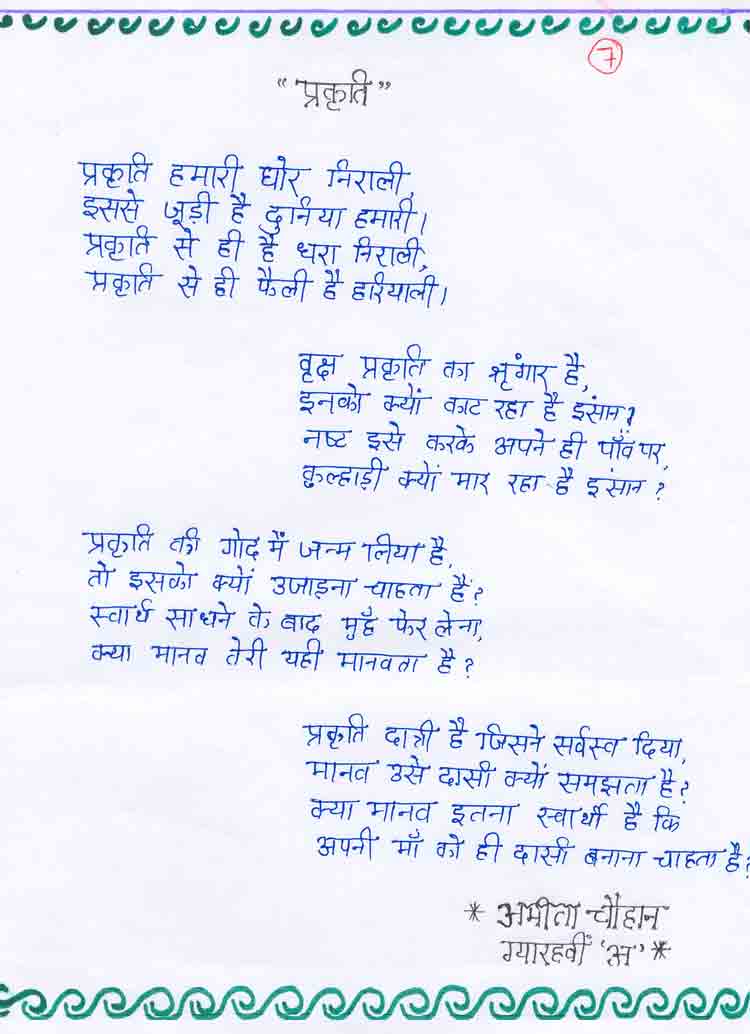 7
“प्रकृति”
प्रकृति हमारी घोर निराली,
इससे जूड़ी है दुनिया हमारी।
प्रकृति से ही है धरा निराली,
प्रकृति से ही फैली है हरियाली।
वृक्ष प्रकृति का श्रृंगार है,
इनको क्यों काट रहा है इंसान?
नष्ट इसे करके अपने ही पाँव पर,
कुल्हाड़ी क्यों मार रहा है इंसान?
प्रकृति की गोद में जन्म लिया है,
तो इसको क्यों उजाड़ना चाहता है?
स्वार्थ साधने के बाद मुहँ फेर लेना,
क्या मानव तेरी यही मानवता है?
प्रकृति दात्री है जिसने सर्वस्व दिया,
मानव उसे दासी क्यों समझता है?
क्या मानव इतना स्वार्थी है कि
अपनी माँ को ही दासी बनाना चाहता है?
* अमीता चौहान
ग्यारहवीं ‘अ’ *